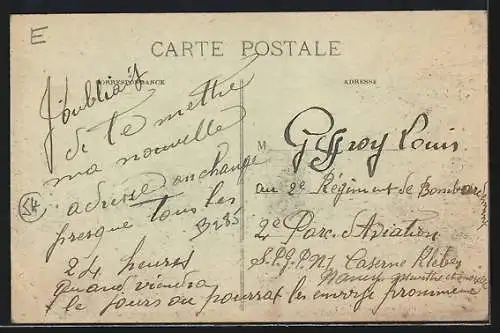 E
CARTE POSTALE
CORRESPONDANCE
ADRESSE
J'oubliais
de te mettre
ma nouvelle
adresse on change
presque tous les
24 heures
Quand viendra
le jours ou pourrat les envoye
54
B235
M
Geffroy Louis
au 2e Régiment de Bombard
2e Parc d'Aviation
S.P.G.P.N.1 Caserne Kleber
Nancy